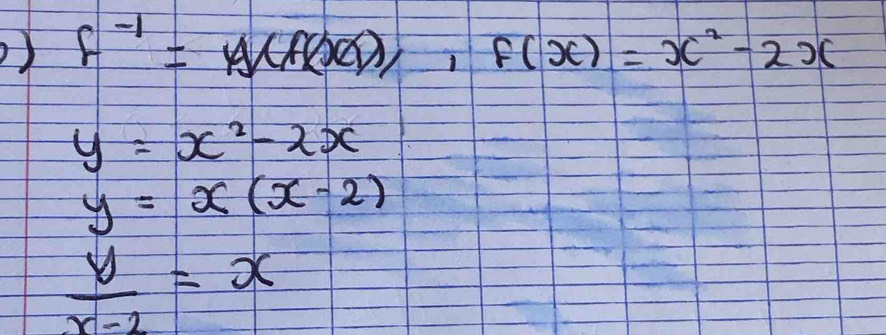 ) f⁻¹ = , f(x) = x² - 2x
y = x² - 2x
y = x(x - 2)
y/x-2 = x